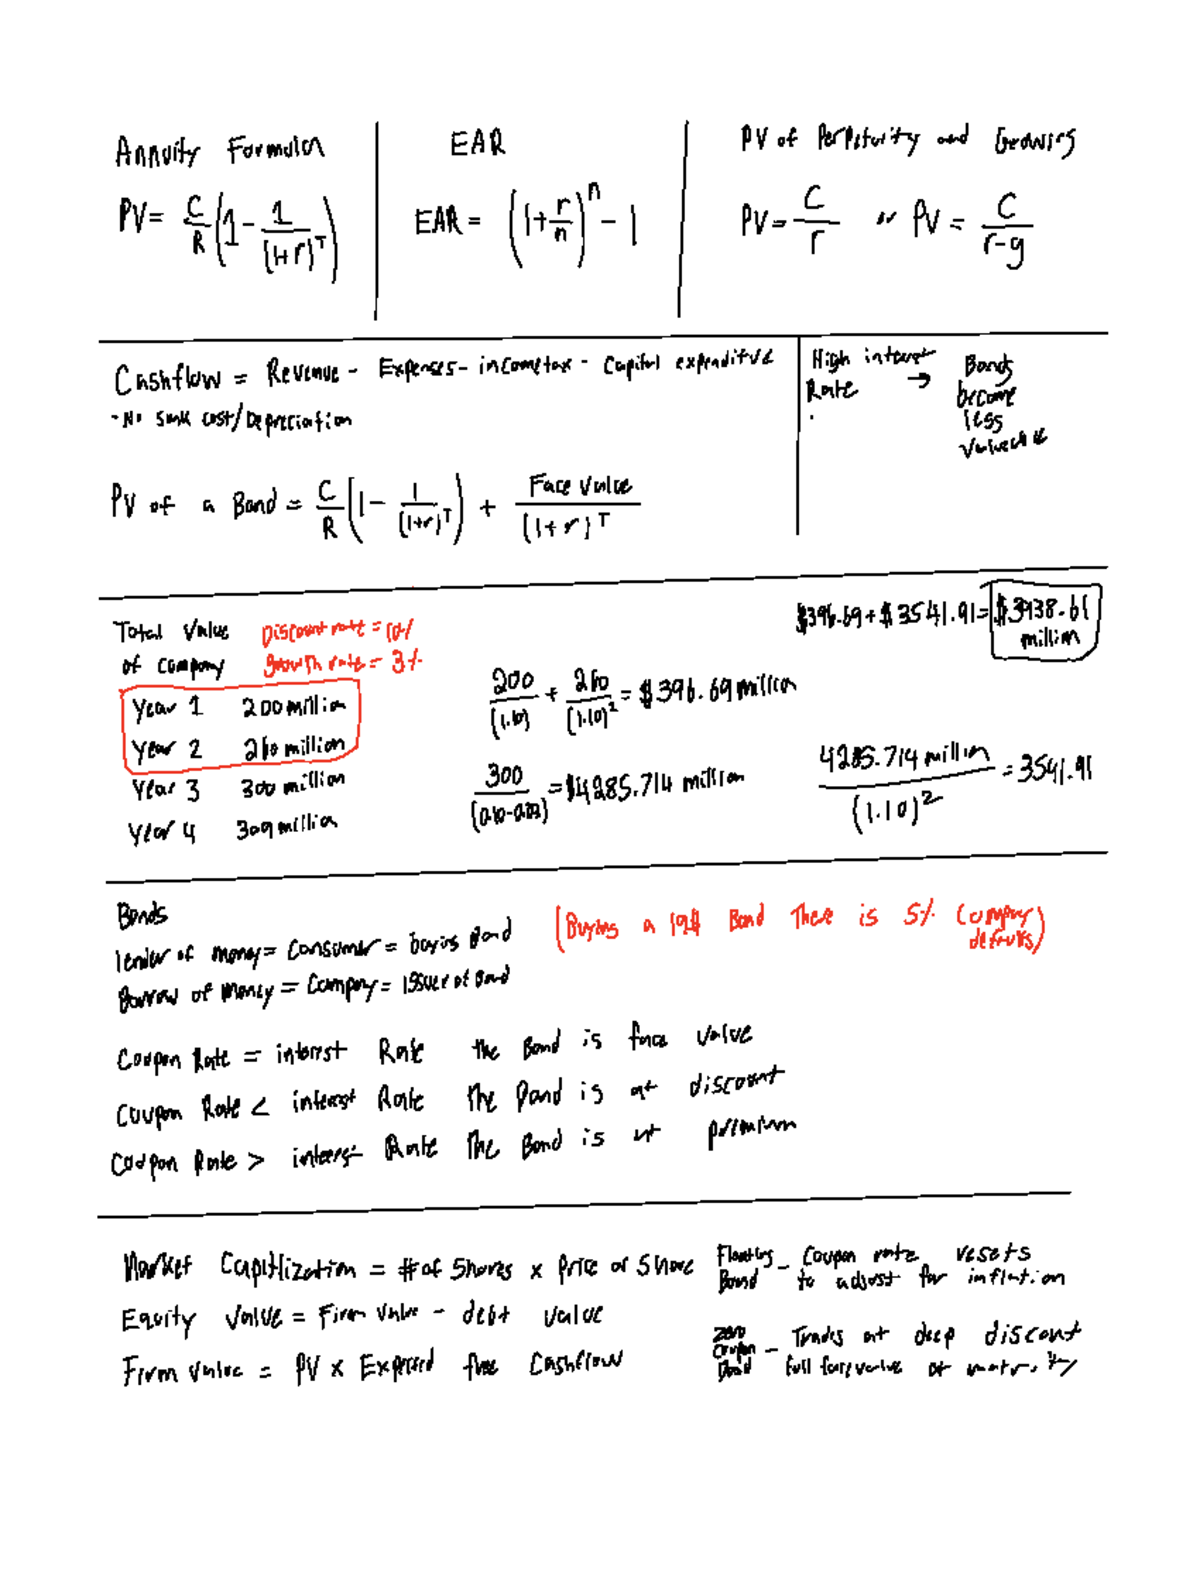 Annuity Formula
PV = C/R (1 - 1/(1+r)^T)
EAR
EAR = (1 + r/n)^n - 1
PV of Perpituity and Growing
PV = C/r or PV = C/(r-g)
Cashflow = Revenue - Expenses - income tax - Capital expenditure
- No sunk cost/Depreciation
High interest Rate → Bonds
become
less
valuable
PV of a Bond = C/R (1 - 1/(1+r)^T) + Face Value/(1+r)^T
Total Value
of company
Discount rate = 10%
growth rate = 3%
$396.69 + $3541.91 = $3938.61
million
Year 1 200 million
Year 2 260 million
Year 3 300 million
Year 4 309 million
200/(1.10) + 260/(1.10)^2 = $396.69 million
300/(0.10-0.03) = $4285.714 million
4285.714 million/(1.10)^2 = 3541.91
Bonds
lender of money = Consumer = buying Bond
Borrow of money = Company = issuer of Bond
(Buying a Bond There is 5% Company
defaults)
Coupon Rate = interest Rate the Bond is face value
Coupon Rate < interest Rate the Bond is at discount
Coupon Rate > interest Rate The Bond is at premium
Market Capitlization = # of Shares x price of Share
Equity Value = Firm value - debt value
Firm value = PV x Expected free Cashflow
Floating Bond - Coupon rate resets
to adjust for inflation
Zero Coupon Bond - Trades at deep discount
full face value at maturity